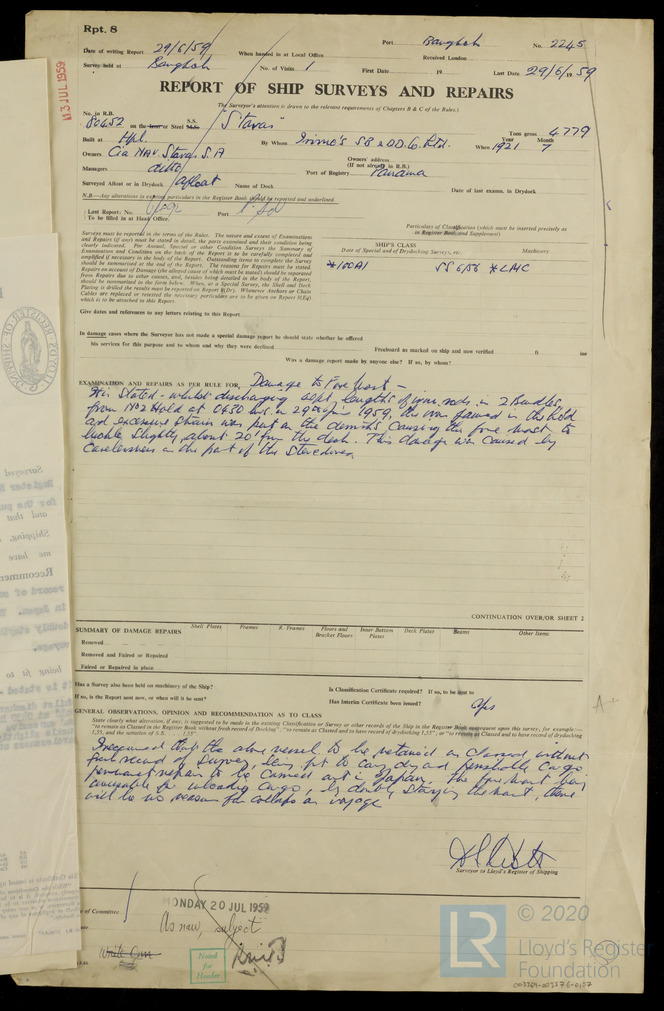 Rpt. 8
Port Bangkok No. 2245
Date of writing Report 29/6/59 When handed in at Local Office Received London
Survey held at Bangkok No. of Visits 1 First Date 19 Last Date 29/6/1959
13 JUL 1959
REPORT OF SHIP SURVEYS AND REPAIRS
(The Surveyor's attention is drawn to the relevant requirements of Chapters B & C of the Rules.)
No. in R.B. 80452 on the Iron or Steel S.S. "Stavas" Tons gross 4779
Built at Hpl. By Whom Irvine's S B & DD. Co. Ltd. When Year 1921 Month 7
Owners Cia Nav Stavas S.A Owners' address (If not already in R.B.)
Managers ditto Port of Registry Panama
Surveyed Afloat or in Drydock Afloat Name of Dock Date of last exams. in Drydock
N.B.—Any alterations in existing particulars in the Register Book should be reported and underlined.
Last Report: No. Port
To be filled in at Head Office.
Particulars of Classification (which must be inserted precisely as in Register Book and Supplement)
Surveys must be reported in the terms of the Rules. The nature and extent of Examinations
and Repairs (if any) must be stated in detail, the parts examined and their condition being
clearly indicated. For Annual, Special or other Condition Surveys the Summary of
Examinations and Condition on the back of the Report is to be carefully completed and
amplified if necessary in the body of the Report. Outstanding items to complete the Survey
should be summarised at the end of the Report. The reasons for Repairs must be stated.
Repairs on account of Damage (the alleged cause of which must be stated) should be separated
from Repairs due to other causes, and, besides being detailed in the body of the Report,
should be summarised in the form below. When, at a Special Survey, the Shell and Deck
Plating is drilled the results must be reported on Report 8(Dr). Whenever Anchors or Chain
Cables are replaced or renewed the necessary particulars are to be given on Report 8(Eq)
which is to be attached to this Report.
SHIP'S CLASS
Date of Special and of Drydocking Surveys, etc. Machinery
*100A1 SS 6/56 *LMC
Give dates and references to any letters relating to this Report
In damage cases where the Surveyor has not made a special damage report he should state whether he offered
his services for this purpose and to whom and why they were declined.
Freeboard as marked on ship and now verified ft ins
Was a damage report made by anyone else? If so, by whom?
EXAMINATION AND REPAIRS AS PER RULE FOR, Damage to Fore Mast –
It is Stated – whilst discharging lengths of iron rods in 2 Bundles
from No 2 Hold at 0430 hrs. on 29 June 1959, the iron jammed in the hold
and excessive strain was put on the derricks causing the fore mast to
buckle slightly about 20' from the deck. This damage was caused by
Carelessness on the part of the Stevedores
CONTINUATION OVER/OR SHEET 2
SUMMARY OF DAMAGE REPAIRS Shell Plates Frames R. Frames Floors and Bracket Floors Inner Bottom Plates Deck Plates Beams Other Items
Renewed
Removed and Faired or Repaired
Faired or Repaired in place
Has a Survey also been held on machinery of the Ship?
If so, is the Report sent now, or when will it be sent?
Is Classification Certificate required? If so, to be sent to
Has Interim Certificate been issued? Yes
GENERAL OBSERVATIONS, OPINION AND RECOMMENDATION AS TO CLASS
State clearly what alteration, if any, is suggested to be made in the existing Classification or Survey or other records of the Ship in the Register Book consequent upon this survey, for example:—
I recommend that the above vessel to be retained as Classed without
fresh record of Survey, being fit to carry dry and perishable cargo
permanent repairs to be carried out in Japan. The fore mast being
for unloading cargo, by double Staying the mast, there
will be no reason for collapse on voyage
Surveyor to Lloyd's Register of Shipping
Date of Committee MONDAY 20 JUL 1959
As now, subject
Write Own
Noted for Header
LR
© 2020
Lloyd's Register
Foundation
003364-003376-0157